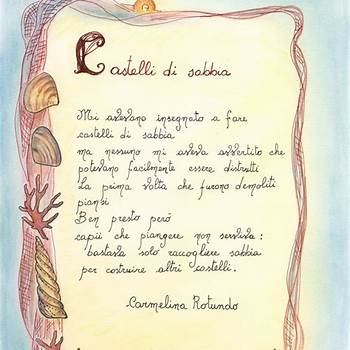 Castelli di sabbia
Mi avevano insegnato a fare
castelli di sabbia
ma nessuno mi aveva avvertito che
potevano facilmente essere distrutti
La prima volta che furono demoliti
piansi
Ben presto però
capii che piangere non serviva:
bastava solo raccogliere sabbia
per costruire altri castelli.
-Carmelina Rotundo